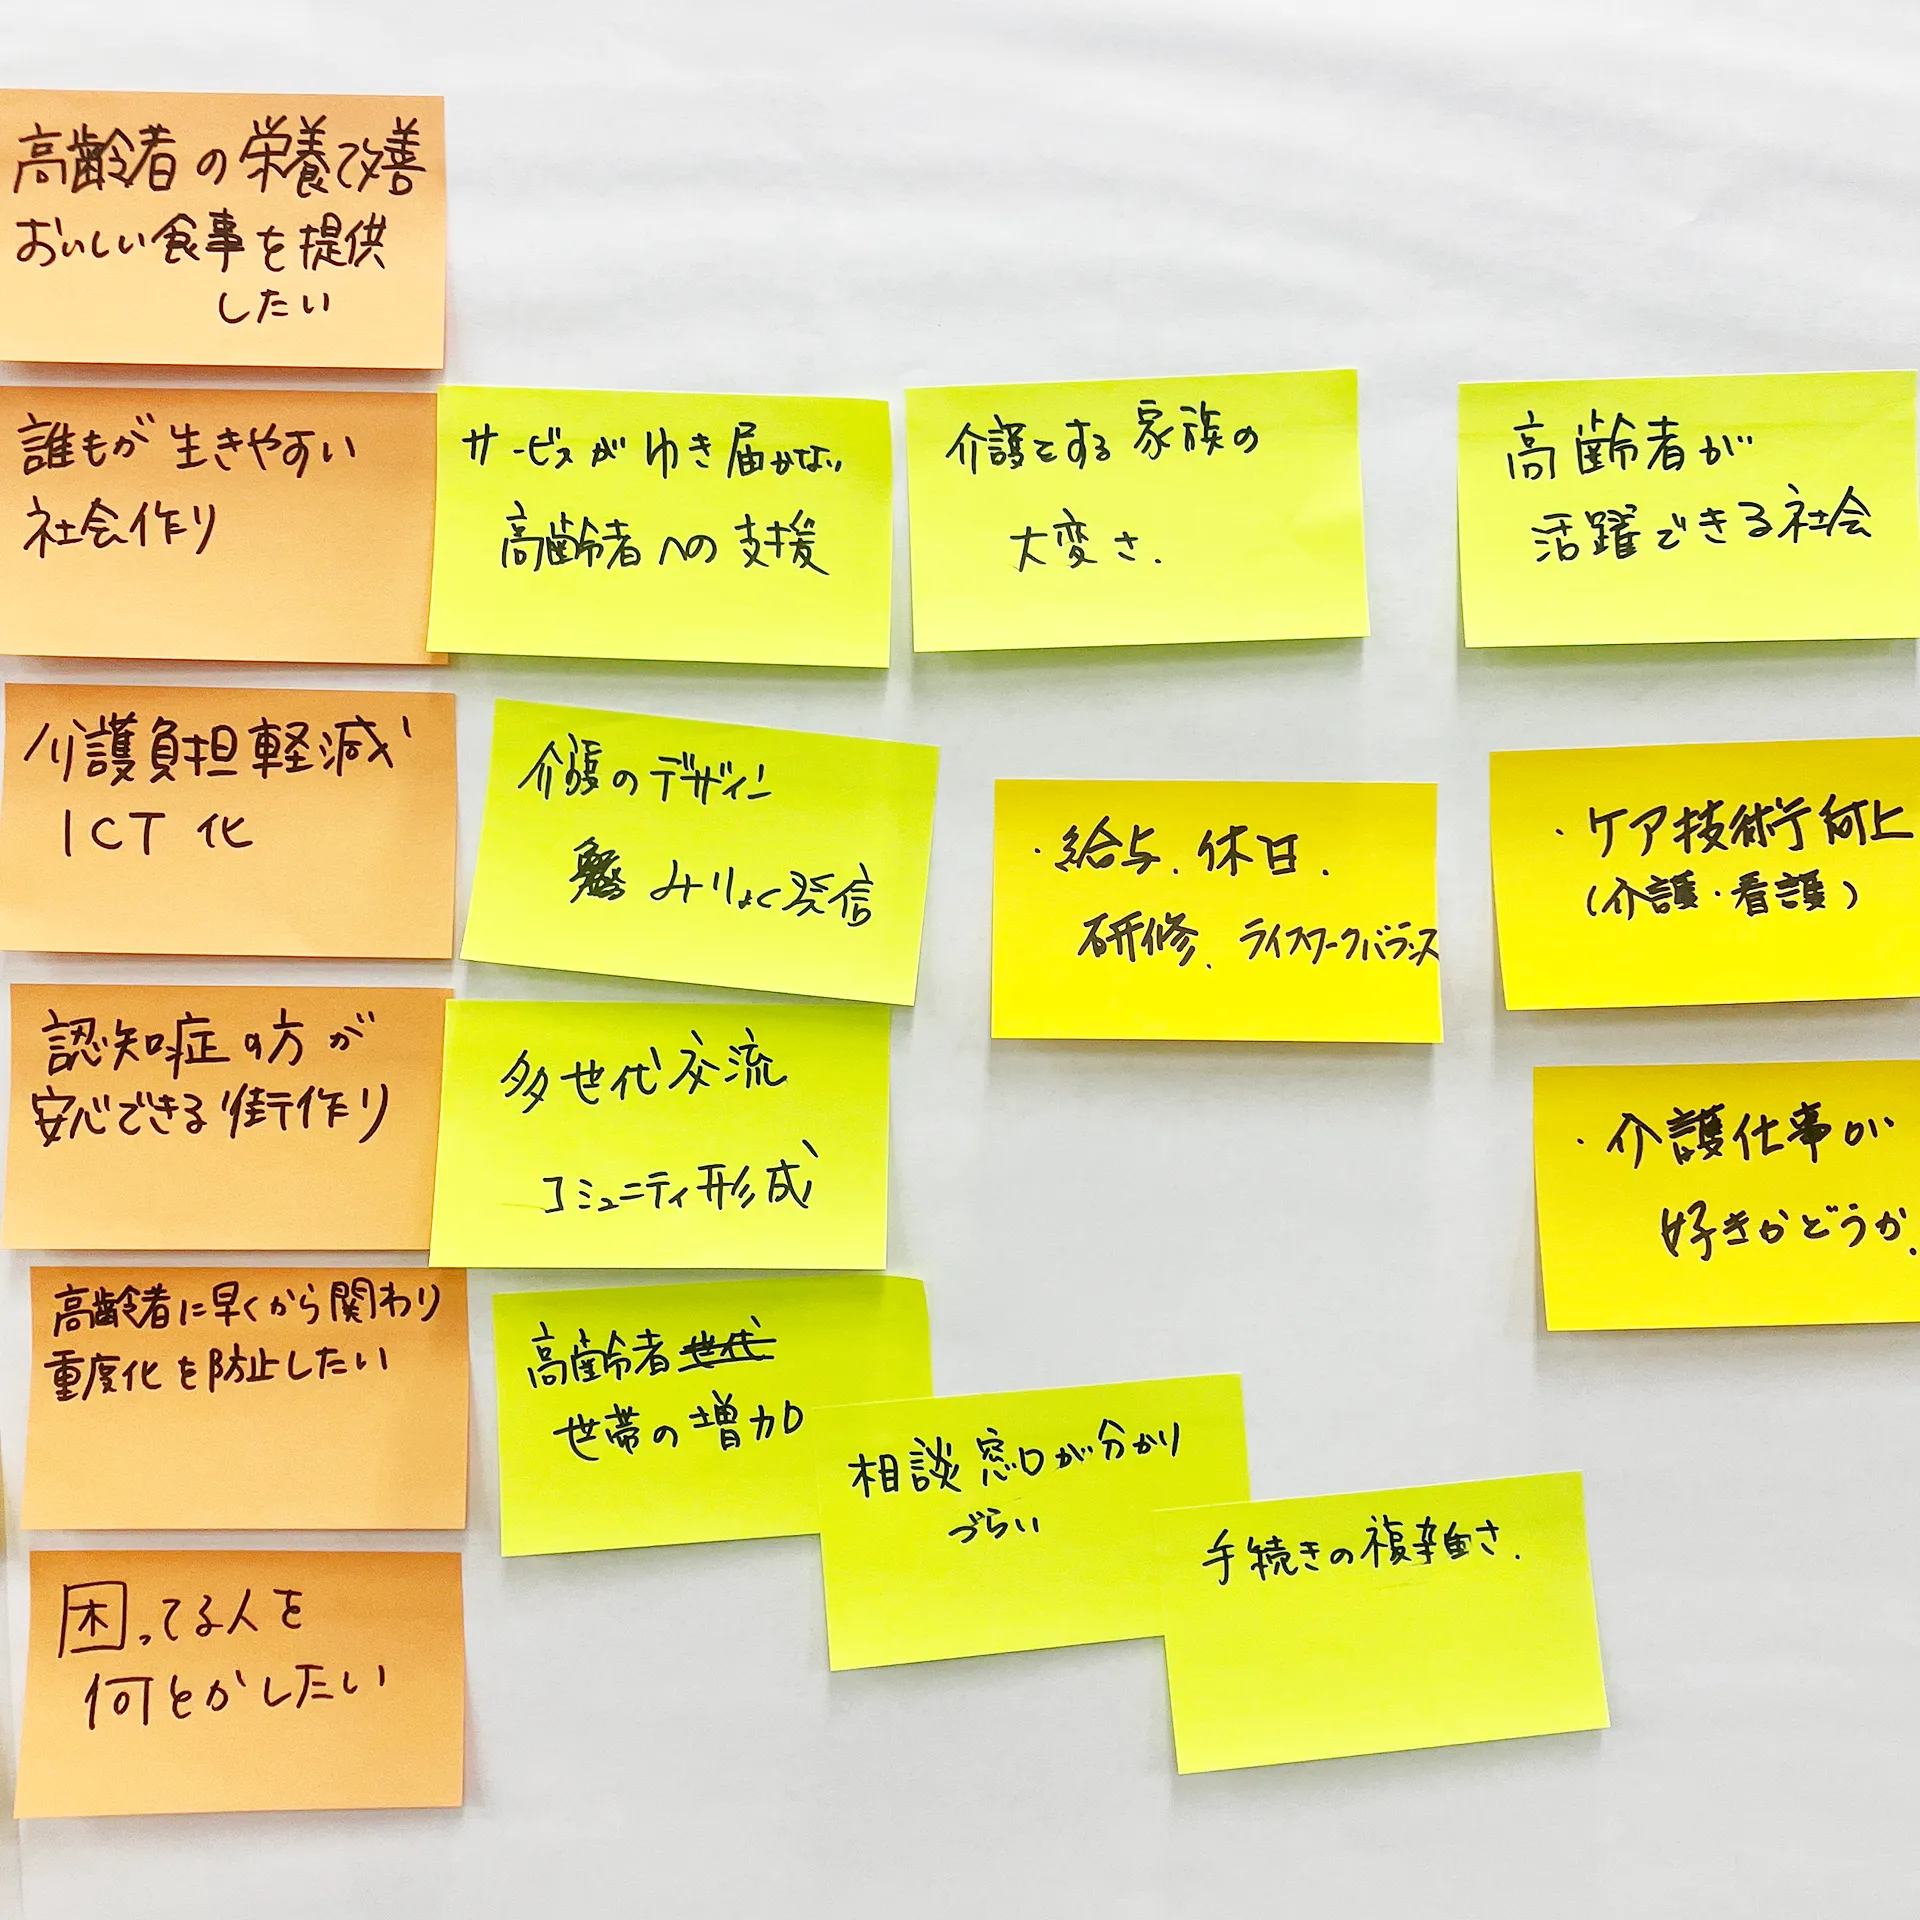 高齢者の栄養改善
おいしい食事を提供
したい
誰もが生きやすい
社会作り
介護負担軽減
ICT化
認知症の方が
安心できる街作り
高齢者に早くから関わり
重度化を防止したい
困ってる人を
何とかしたい
サービスがゆき届かない
高齢者への支援
介護のデザイン
みりょく発信
多世代交流
コミュニティ形成
高齢者世代
世帯の増加
相談窓口が分かり
づらい
手続きの複雑さ.
介護をする家族の
大変さ.
高齢者が
活躍できる社会
・給与、休日、
研修、ライフワークバランス
・ケア技術向上
(介護・看護)
・介護仕事が
好きかどうか.